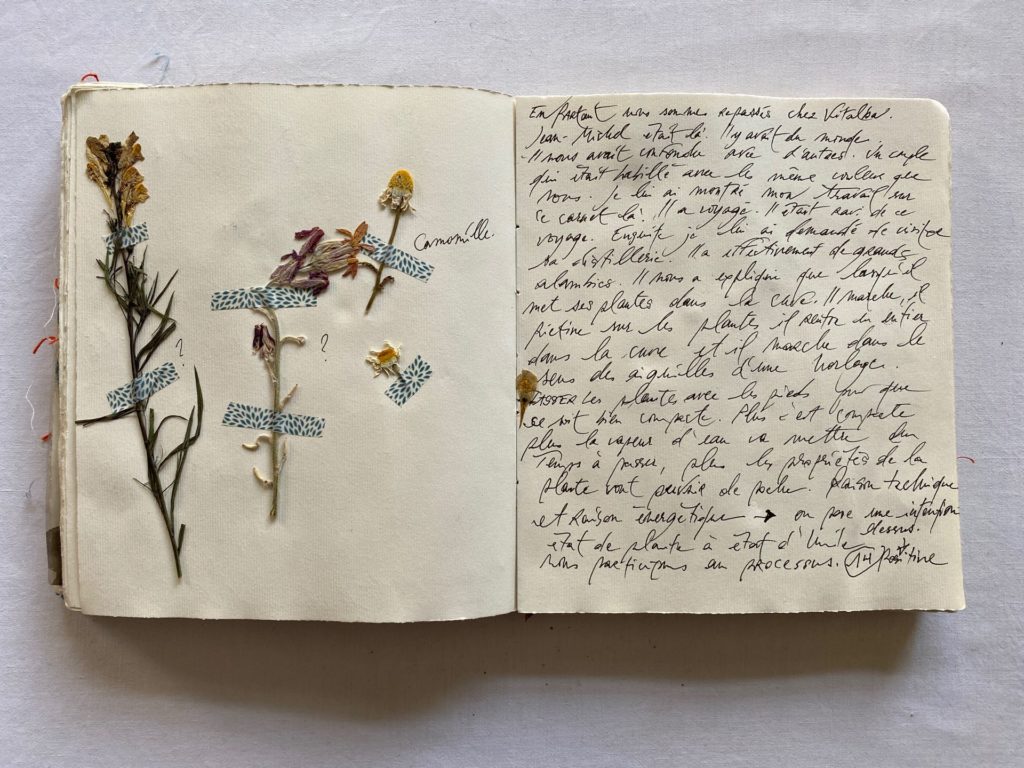 ?
?
Camomille.
En partant nous sommes repassés chez Vitalba.
Jean-Michel était là. Il y avait du monde.
Il nous avait confondu avec d'autres. Un couple
qui était habillé avec les même couleurs que
nous. Je lui ai montré mon travail sur
ce carnet là. Il a voyagé. Il était ravi de ce
voyage. Ensuite je lui ai demandé de visiter
sa distillerie. Il a effectivement de grands
alambics. Il nous a expliqué que lorsqu'il
met ses plantes dans la cuve. Il marche, il
piétine sur les plantes il rentre en entier
dans la cuve et il marche dans le
sens des aiguilles d'une horloge.
TASSER les plantes avec les pieds pour que
ce soit bien compacte. Plus c'est compacte
plus la vapeur d'eau va mettre du
temps à passer, plus les propriétés de la
plante vont pouvoir de . Raison technique
et raison énergétique → on pose une intention
dessus.
état de plante à état d'huile
nous participons au processus. (14) positive